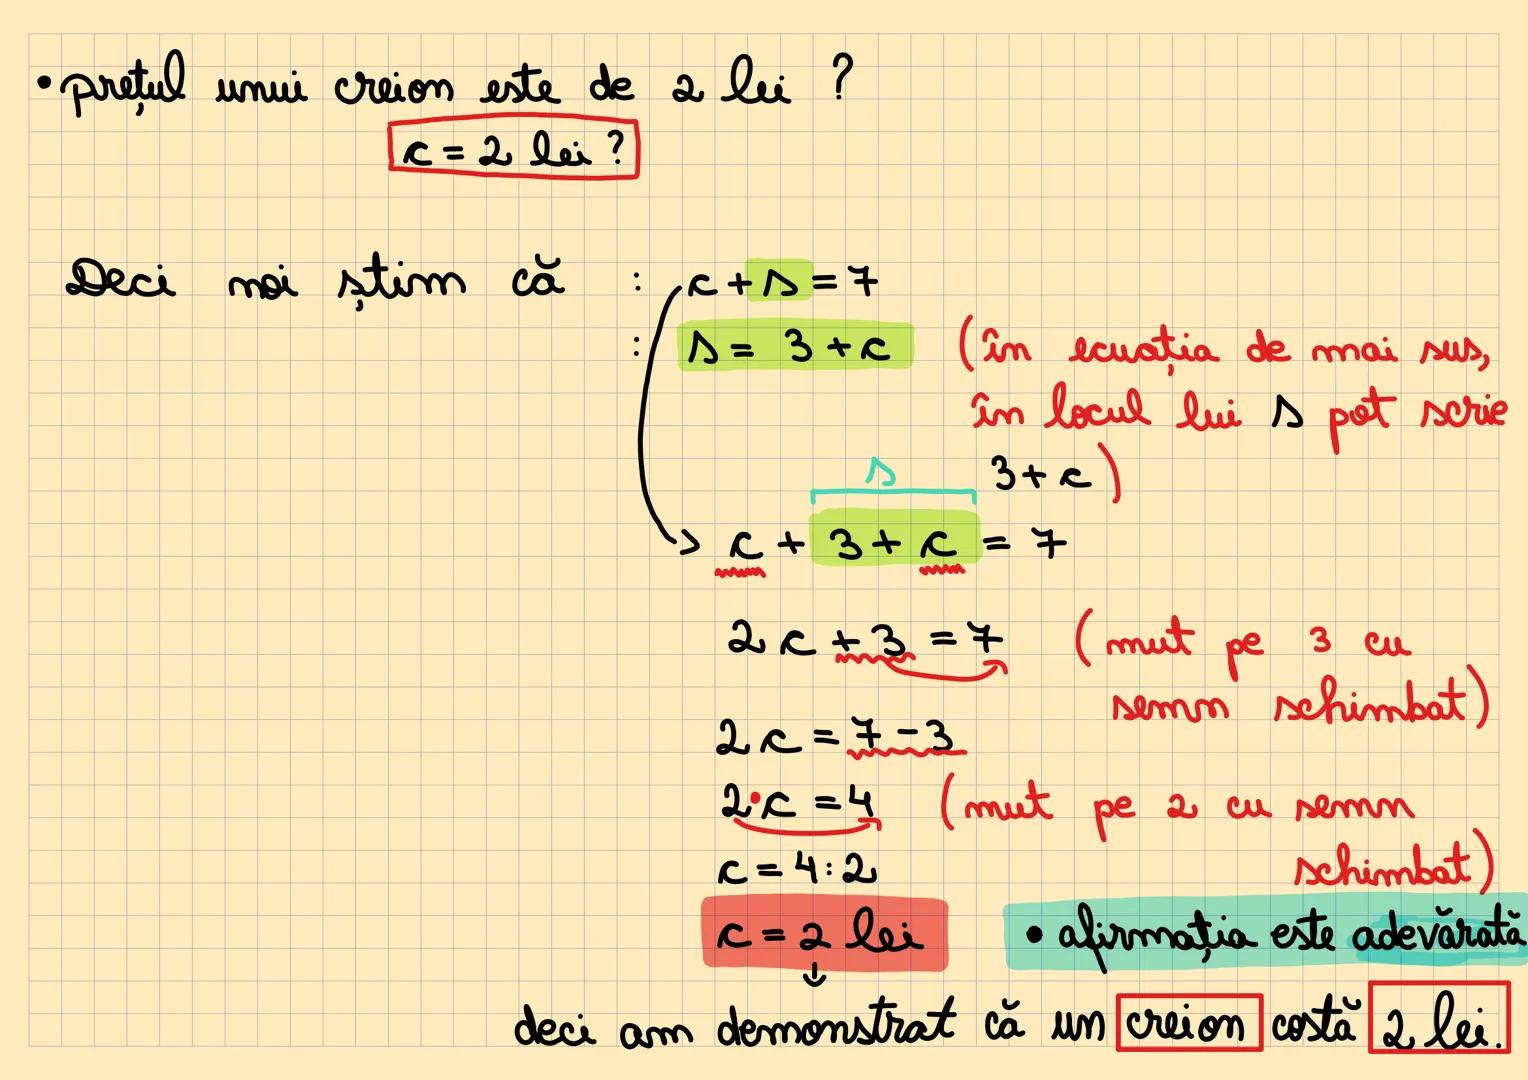 • prețul unui creion este de 2 lei ?
c = 2 lei ?
Deci noi știm că : c + s = 7
: s = 3 + c (în ecuația de mai sus,
în locul lui s pot scrie
s 3 + c)
c + 3 + c = 7
2c + 3 = 7 (mut pe 3 cu
semn schimbat)
2c = 7 - 3
2•c = 4 (mut pe 2 cu semn
schimbat)
c = 4 : 2
c = 2 lei • afirmația este adevărată
deci am demonstrat că un creion costă 2 lei.